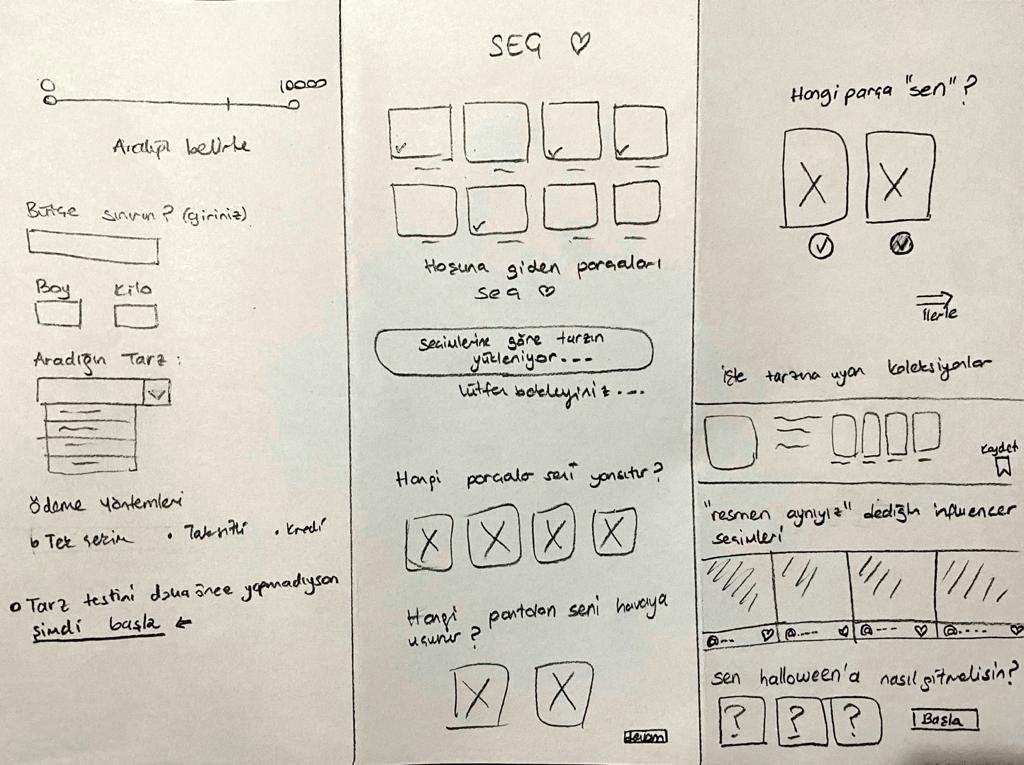 10000
Aralığı belirle
Bütçe sınırın? (giriniz)
Boy Kilo
Aradığın Tarz:
Ödeme yöntemleri
Tek seçim • Taksitli • Kredi
Tarz testini daha önce yapmadıysan
şimdi başla
SEÇ ♡
Hoşuna giden parçaları
seç ♡
seçimlerine göre tarzın
yükleniyor...
lütfen bekleyiniz....
Hangi parçalar seni yansıtır?
Hangi pantolon seni havaya
uçurur?
devam
Hangi parça "sen"?
İlerle
işte tarzına uyan koleksiyonlar
kaydet
"resmen aynıyız" dediğin influencer
seçimleri
@-- ♡ @---- ♡ @--- ♡ @.... ♡
sen halloween'a nasıl gitmelisin?
? ? ? Başla